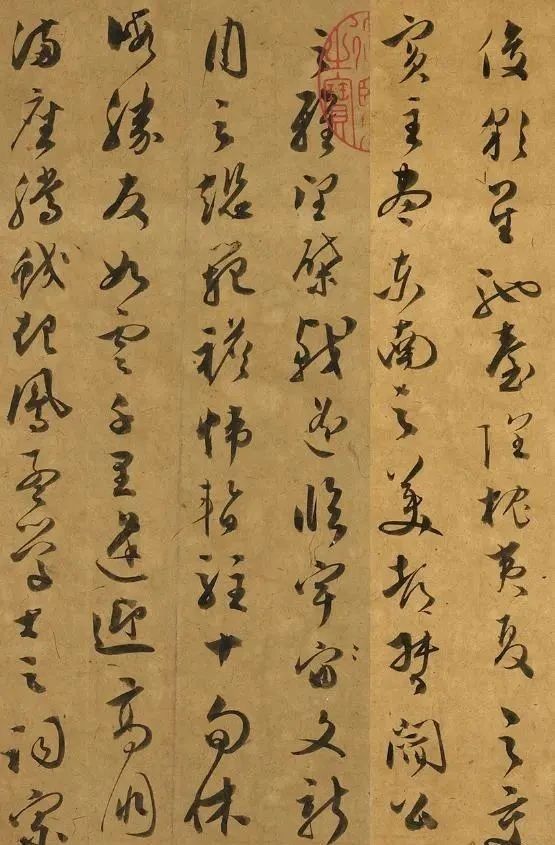 俊彩星馳臺隍枕夷夏之交
賓主盡東南之美都督閻公
之雅望棨戟遥臨宇宙文新
州之懿範襜帷暫駐十旬休
暇勝友如雲千里逢迎高朋
滿座騰蛟起鳳孟學士之詞宗